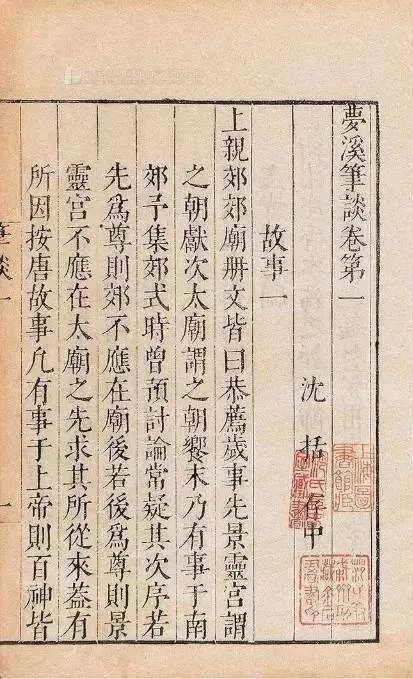 夢溪筆談卷第一
沈括存中
故事一
上親郊郊廟册文皆曰恭薦歲事先景靈宮謂
之朝獻次太廟謂之朝饗末乃有事于南
郊予集郊式時曾預討論常疑其次序若
先爲尊則郊不應在廟後若後爲尊則景
靈宮不應在太廟之先求其所從來葢有
所因按唐故事凢有事于上帝則百神皆
筆談一
一